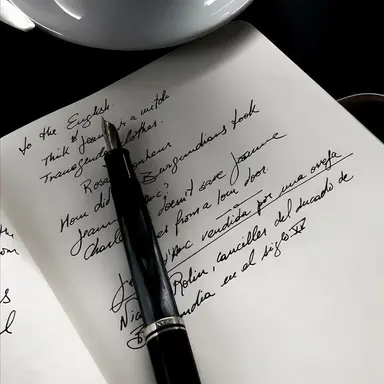 to the English.
Think of Jeanne a witch
Transgender clothes.
Rosa Bonheur
How did Burgundians took
Jeanne d'Arc?
Charles doesn't save Jeanne
from a tour door.
d'Arc vendida por una oveja
Rolin, canciller del ducado de
en el siglo XV